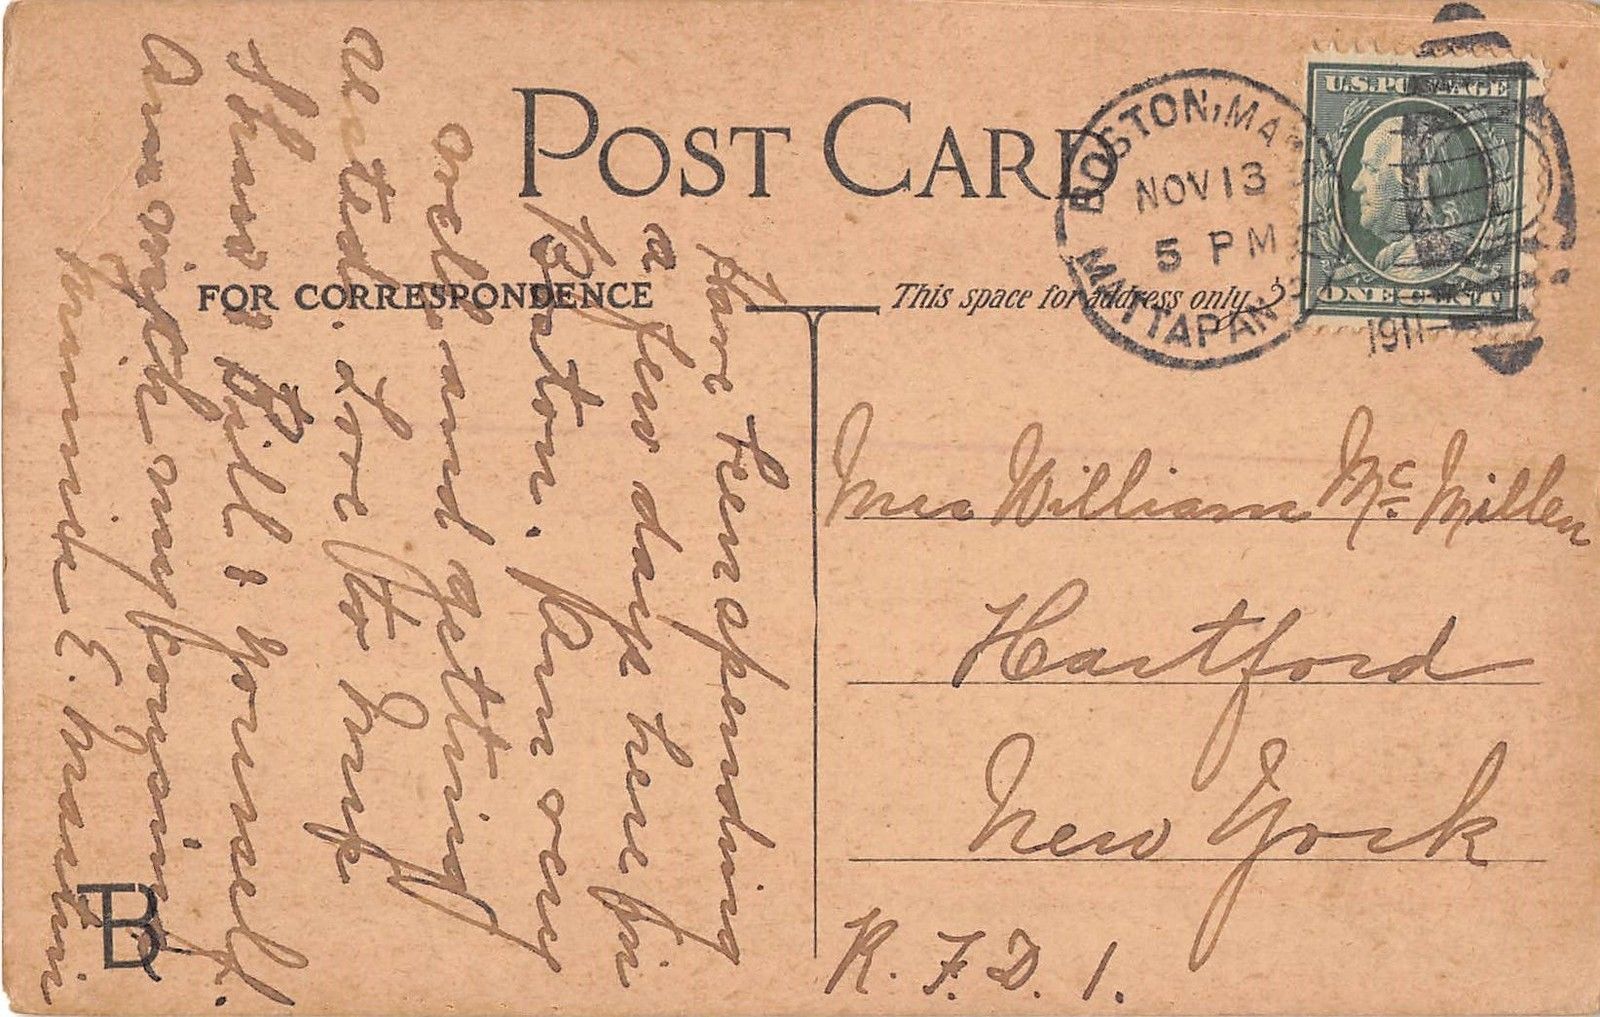 POST CARD
BOSTON, MASS.
NOV 13
5 PM
1911
MATTAPAN STA.
U.S. POSTAGE
ONE CENT
FOR CORRESPONDENCE
This space for address only
Have been spending
a few days here in
Boston. Am very
well and getting
rested. Love to
Bill & yourself.
Am with my cousin
Minnie E.
Mrs William Mc Millen
Hartford
New York
R. F. D. 1.